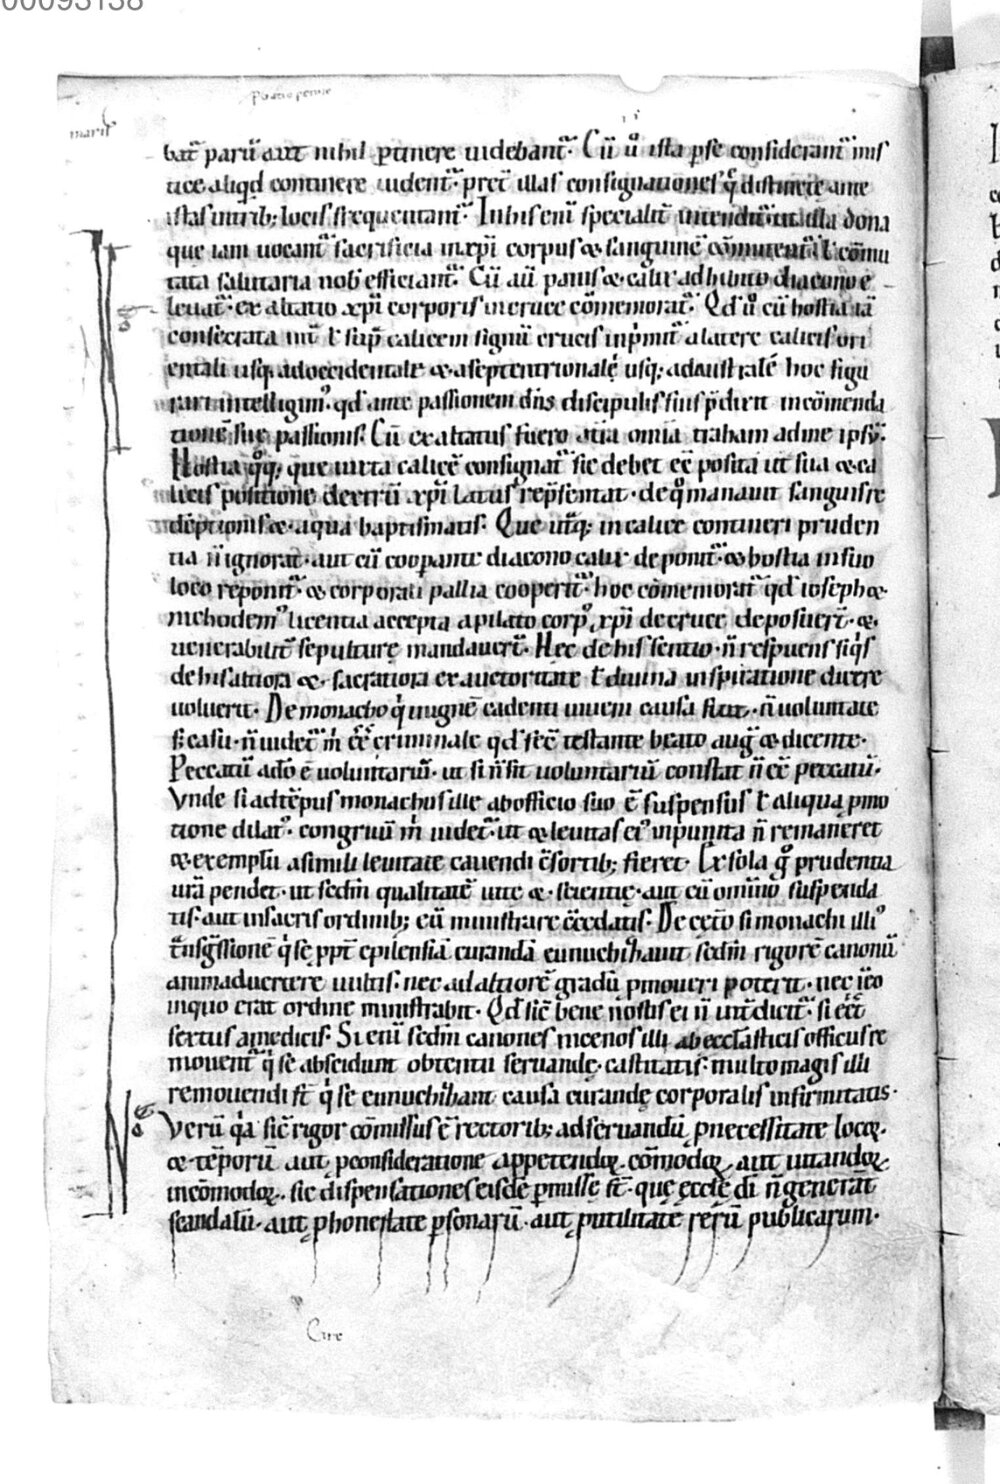 00093138
Probatio penne
bat͛ parū aut nihil ꝑtinere uidebant͛. Cū ů ista ꝑ se considerant͛ inıs
ııce aliqd continere uident͛. pret͛ illas consignationes q̊ distincte ante
istas in trib; locis freq̄uentant͛. In his enī specialit͛ intendit͛ ut illa dona
que iam uocant͛ sacrificia in xp̄i corpus ⁊ sanguinē cōmutent͛. ł cōmu
tata salutaria nob̄ efficiant͛. Cū aū panis ⁊ calix adhibito diacono e
leuat͛. exaltatio xp̄i corporis in cruce cōmemorat͛. Qd ů cū hostia iā
consecrata int̄ ł sup̄ calicem signū crucis inp̍mit͛ a latere calicis ori
entali usq; ad occidentale ⁊ a septentrionalę usq; ad australē hoc figu
rari intelligim᾿. qd ante passionem dn̄s discipulis suis p̄dixit in cōmenda
tionē suę passionis. Cū exaltatus fuero a t̄ra omīa traham ad me ipsū.
Hostia q̊q; que iuxta calicē consignat͛ sic debet eē posita ut sua ⁊ ca
licis positione dextrū xp̄i latus rep̄sentat. de q̊ manauit sanguis re
dēptionis ⁊ aqua baptismatis. Que utraq; in calice contineri pruden
tia n̄ ignorat. aut cū cooꝑante diacono calix deponit͛. ⁊ hostia in suo
loco reponit͛. ⁊ corporali pallia cooperit͛. hoc cōmemorat͛ qd ioseph ⁊
nichodem᾿ licentia accepta a pilato corp᾿ xp̄i de cruce deposuer̄t. ⁊
uenerabilit͛ sepulturę mandauer̄t. Hęc de his sentio. n̄ respuens siq̍s
de his altiora ⁊ sacratiora ex auctoritate ł diuina inspiratione dicere
uoluerit. De monacho q̍ iugnē cadenti uiuem causa fuit. n̄ uoluntate
s; casu. n̄ uidet͛ m̍ eē criminale qd fec̄ testante beato auḡ ⁊ dicente.
Peccatū adeo ē uoluntariū. ut si n̄ sit uoluntariū constat n̄ eē peccatū.
Vnde si ad tēpus monachus ille ab officio suo ē suspensus ł aliqua ꝓmo
tione dilat᾿. congruū m̍ uidet͛. ut ⁊ leuitas ei᾿ inpunita n̄ remaneret
⁊ exemplū a simili leuitate cauendi cōsortib; fieret. Ex sola q̊ prudentia
ur̄a pendet. ut sedm̄ qualitatē uitę ⁊ scientię. aut eū omīno suspenda
tis. aut in sacris ordinib; eū ministrare cōcedatis. De cęt͛o si monachi illi᾿
t̄nsg̊ssionē q̍ sē ppt͛ epilensiā curandā eunuchizauit sedm̄ rigorē canonū
animaduertere uultis. nec ad altiorē gradū ꝓmoueri poterit. nec in eo
in quo erat ordine ministrabit. Qd sic̄ bene nostis ei n̄ int͛dicit͛. si eēt
sectus a medicis. Si enī sedm̄ canones nicenos illi ab eccl̄asticis officiis re
mouent͛ q̍ se abscidunt obtentu seruandę castitatis. multo magis illi
remouendi st̄ q̍ se eunuchizant causa curandę corporalis infirmitatis.
Verū q̍a sic̄ rigor cōmissus ē rectorib; ad seruandū ꝓ necessitate locoꝝ.
⁊ tēporū aut ꝓ consideratione appetendoꝝ. cōmodoꝝ aut uitandoꝝ
incōmodoꝝ. sic dispensationes eisdē ꝑmissę st̄. quę ecclę dī n̄ generāt
scandalū. aut ꝓ honestate ꝑsonarū. aut ꝓ utilitate rerū publicarum.